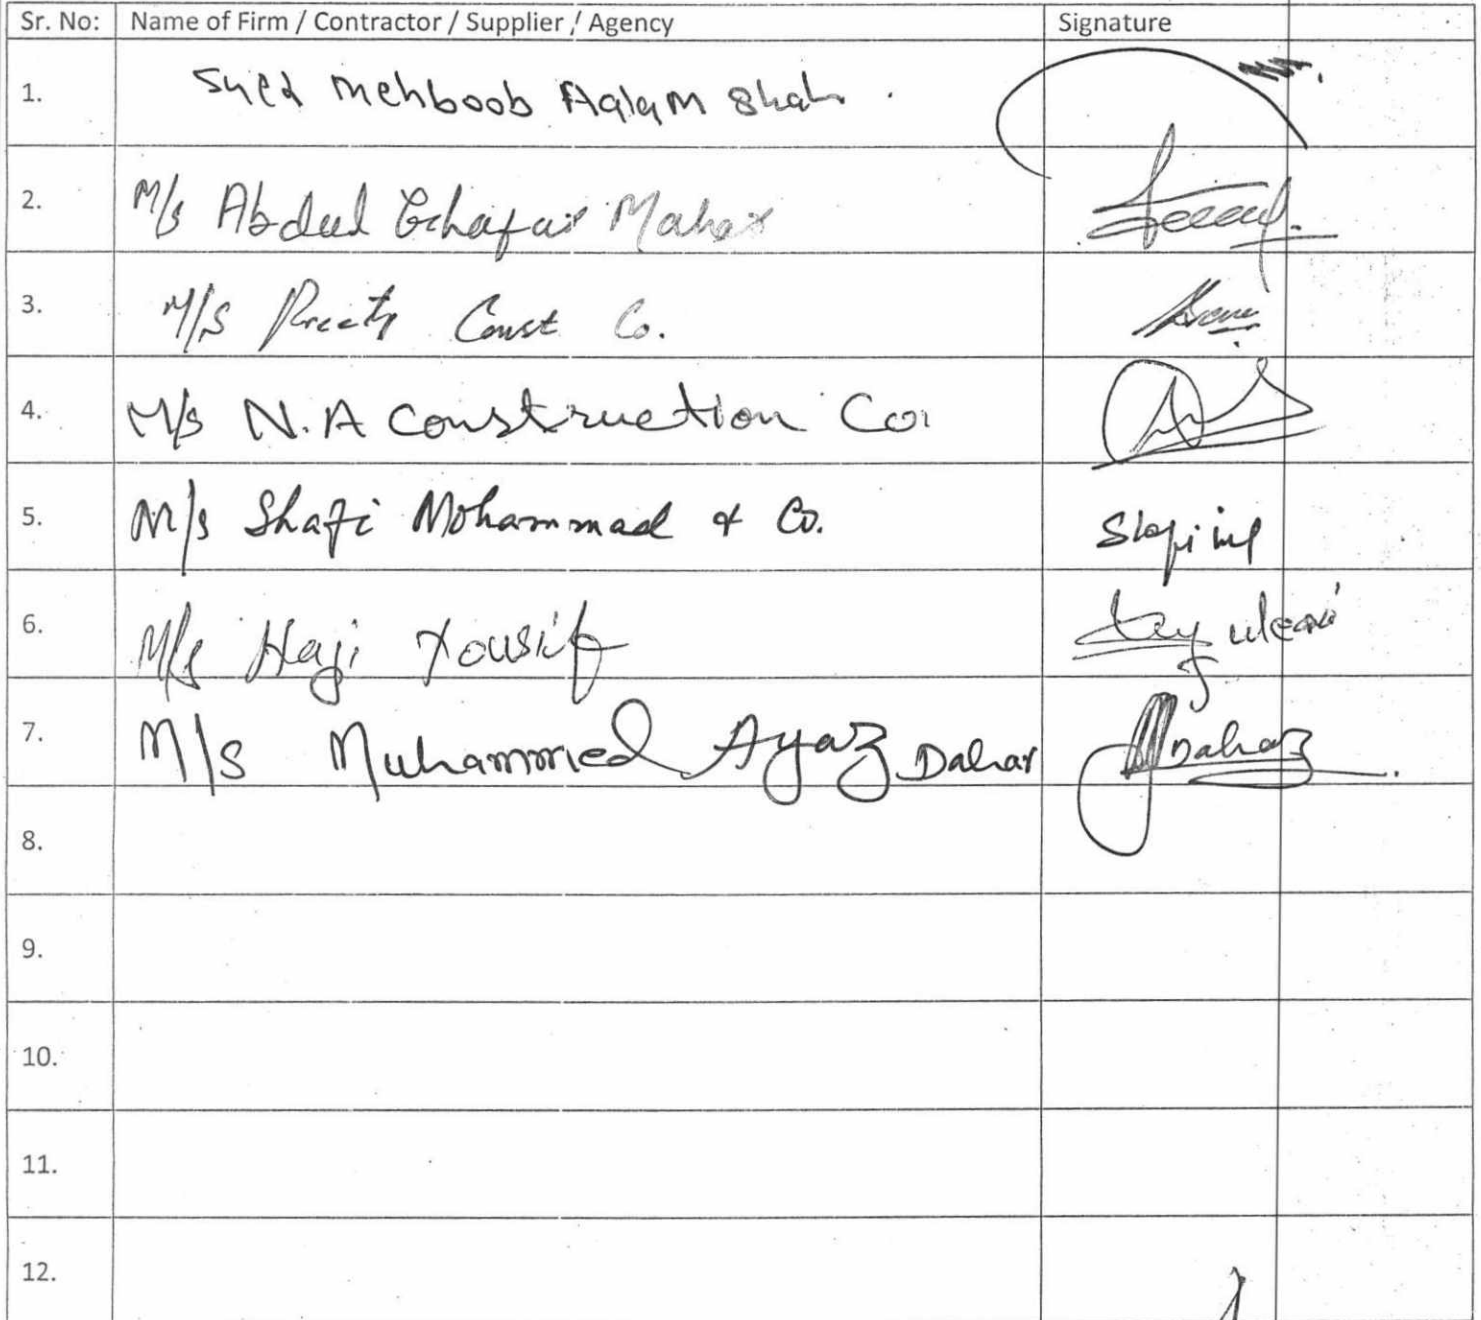 Sr. No: Name of Firm / Contractor / Supplier / Agency Signature
1. Syed Mehboob Aalam Shah .
2. M/s Abdul Ghafar Mahar
3. M/S Const Co.
4. M/s N.A Construction Co.
5. M/s Shafi Mohammad & Co.
6. M/s Haji Yousif
7. M/S Muhammed Ayaz Dahar Dahar
8.
9.
10.
11.
12.